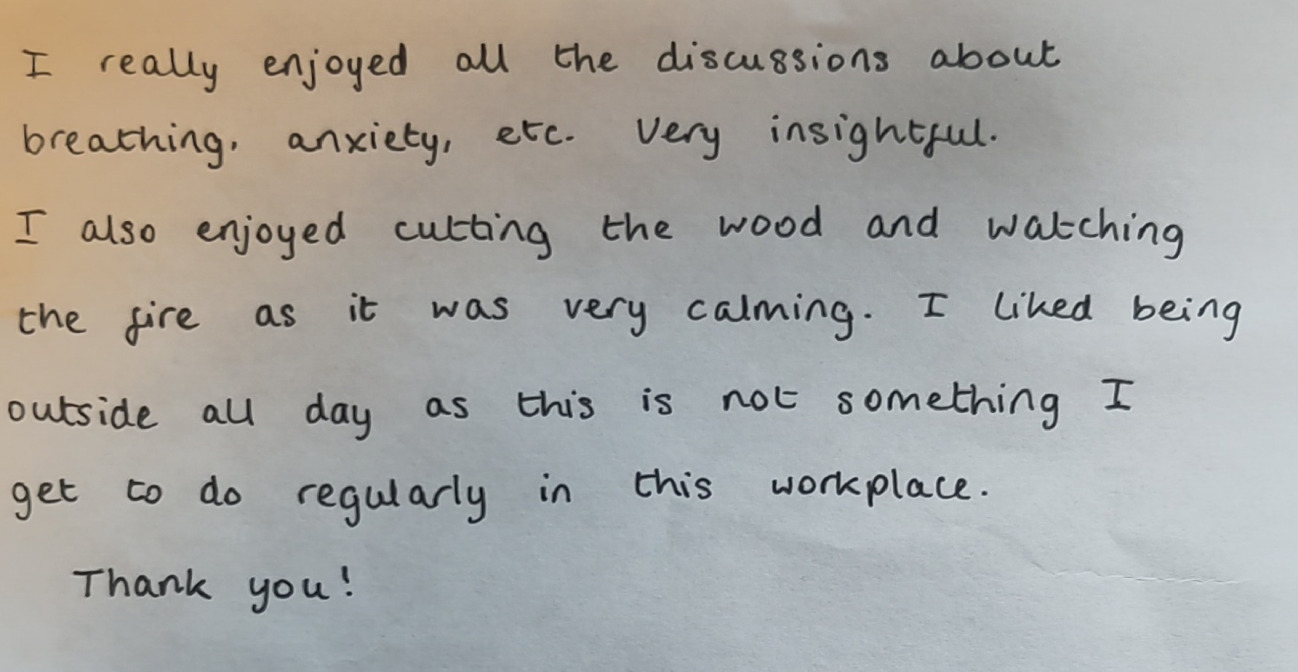 I really enjoyed all the discussions about
breathing, anxiety, etc. Very insightful.
I also enjoyed cutting the wood and watching
the fire as it was very calming. I liked being
outside all day as this is not something I
get to do regularly in this workplace.
Thank you!